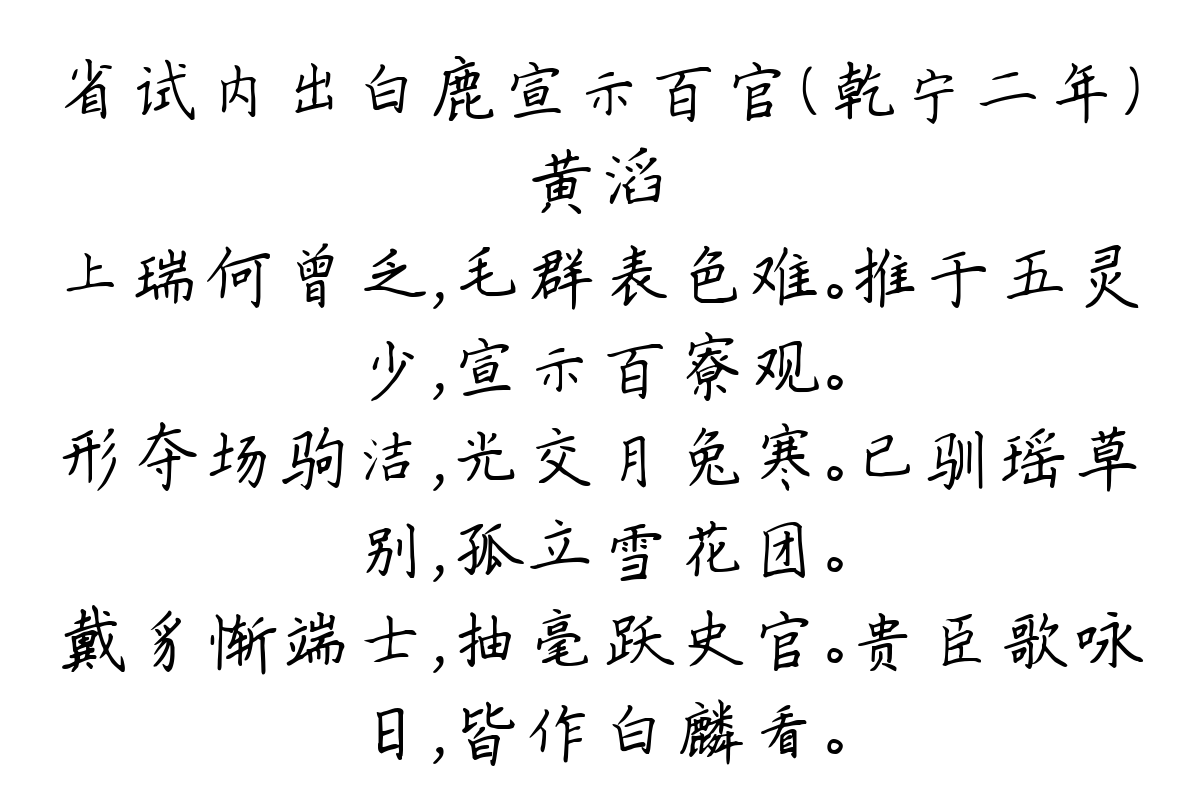 省试内出白鹿宣示百官(乾宁二年)
黄滔
上瑞何曾乏,毛群表色难。推于五灵
少,宣示百寮观。
形夺场驹洁,光交月兔寒。已驯瑶草
别,孤立雪花团。
戴豸惭端士,抽毫跃史官。贵臣歌咏
日,皆作白麟看。